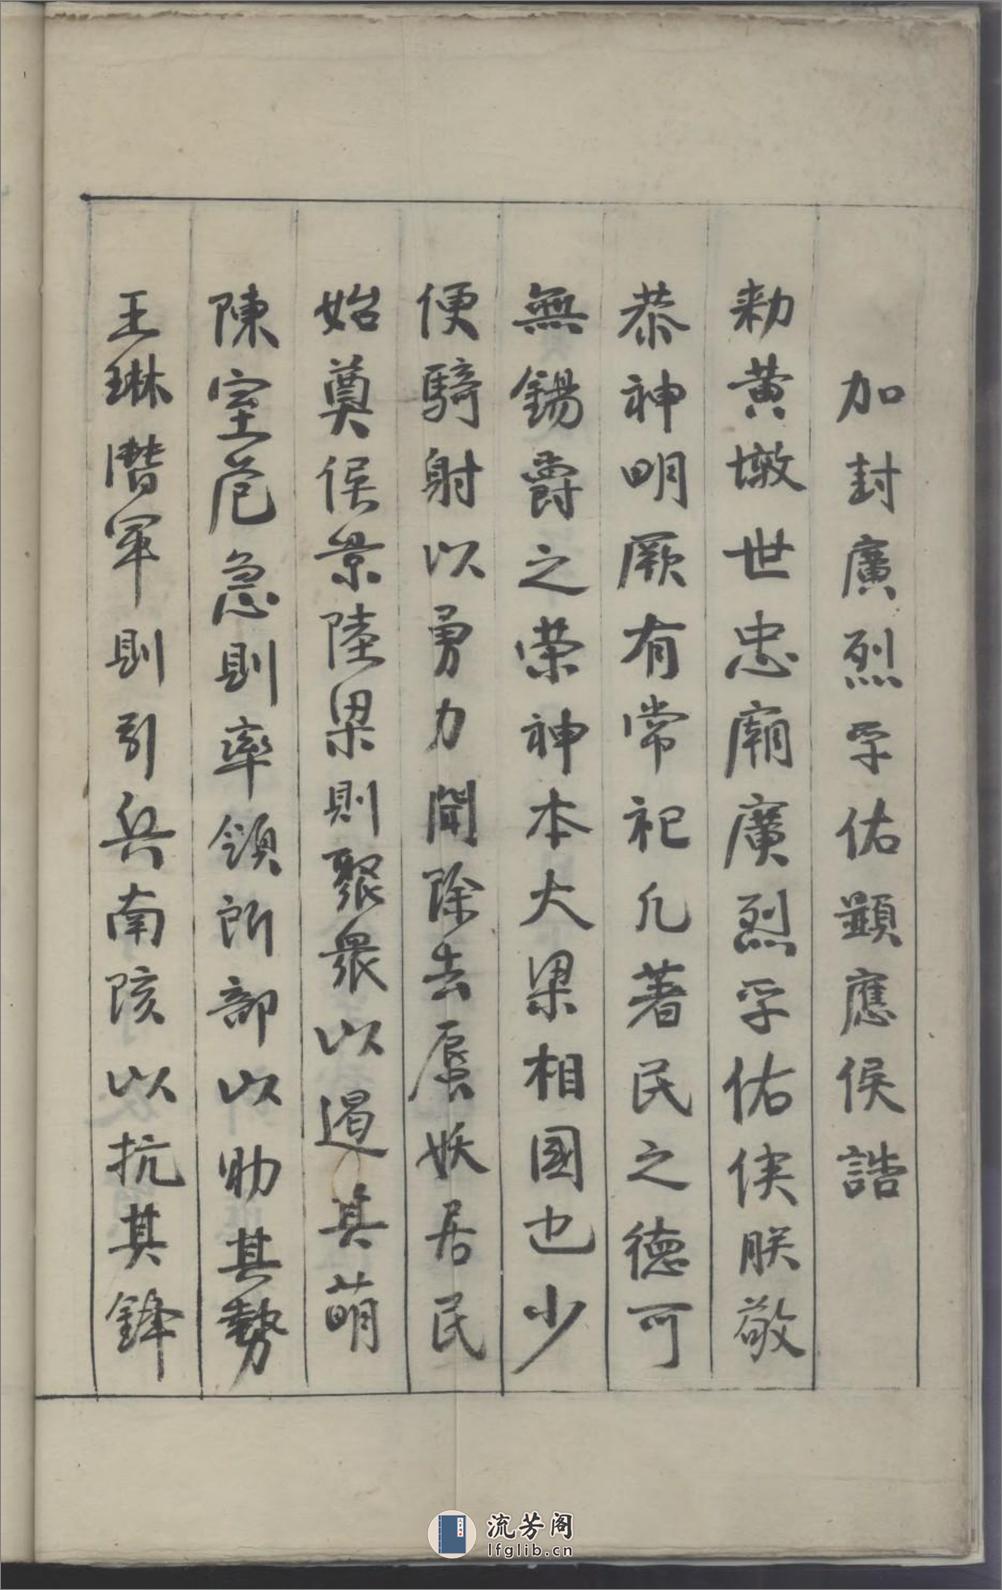 加封廣烈孚佑顯應侯誥
勑黄墩世忠廟廣烈孚佑侯朕敬
恭神明厥有常祀凢著民之德可
無錫爵之荣神神本大梁相國也少
便騎射以勇力聞除去蜃妖居民
始奠侯景陸梁則聚衆以遏其萌
陳室危急則率領所部以助其勢
王琳潛軍則引兵南陔以抗其鋒
流芳阁
lfglib.cn